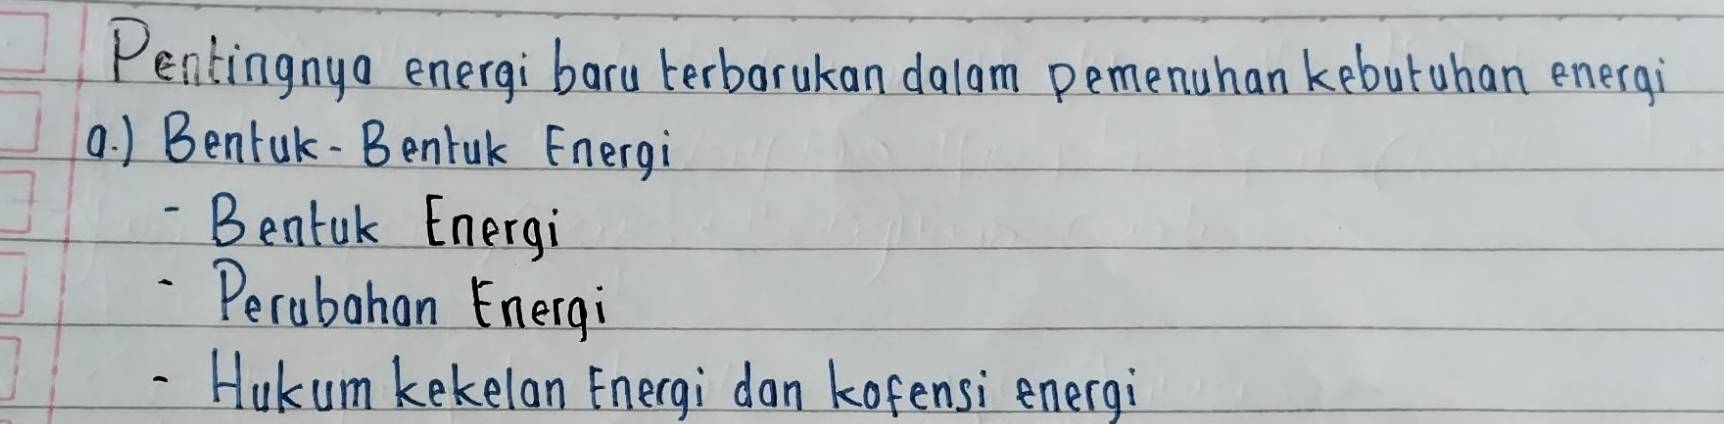 Pentingnya energi baru terbarukan dalam pemenuhan kebutuhan energi
a.) Bentuk-Bentuk Energi
- Bentuk Energi
- Perubahan Energi
- Hukum kekelan Energi dan kofensi energi